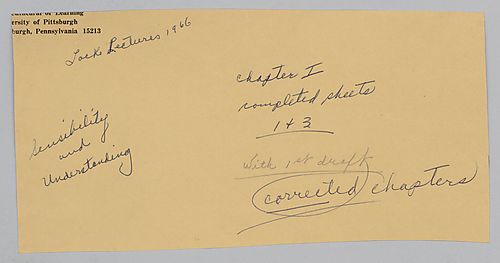 Cathedral of Learning
ersity of Pittsburgh
burgh, Pennsylvania 15213
Lock Lectures, 1966
Sensibility
and
Understanding
chapter I
completed sheets
1 + 3
With 1st draft
corrected chapters